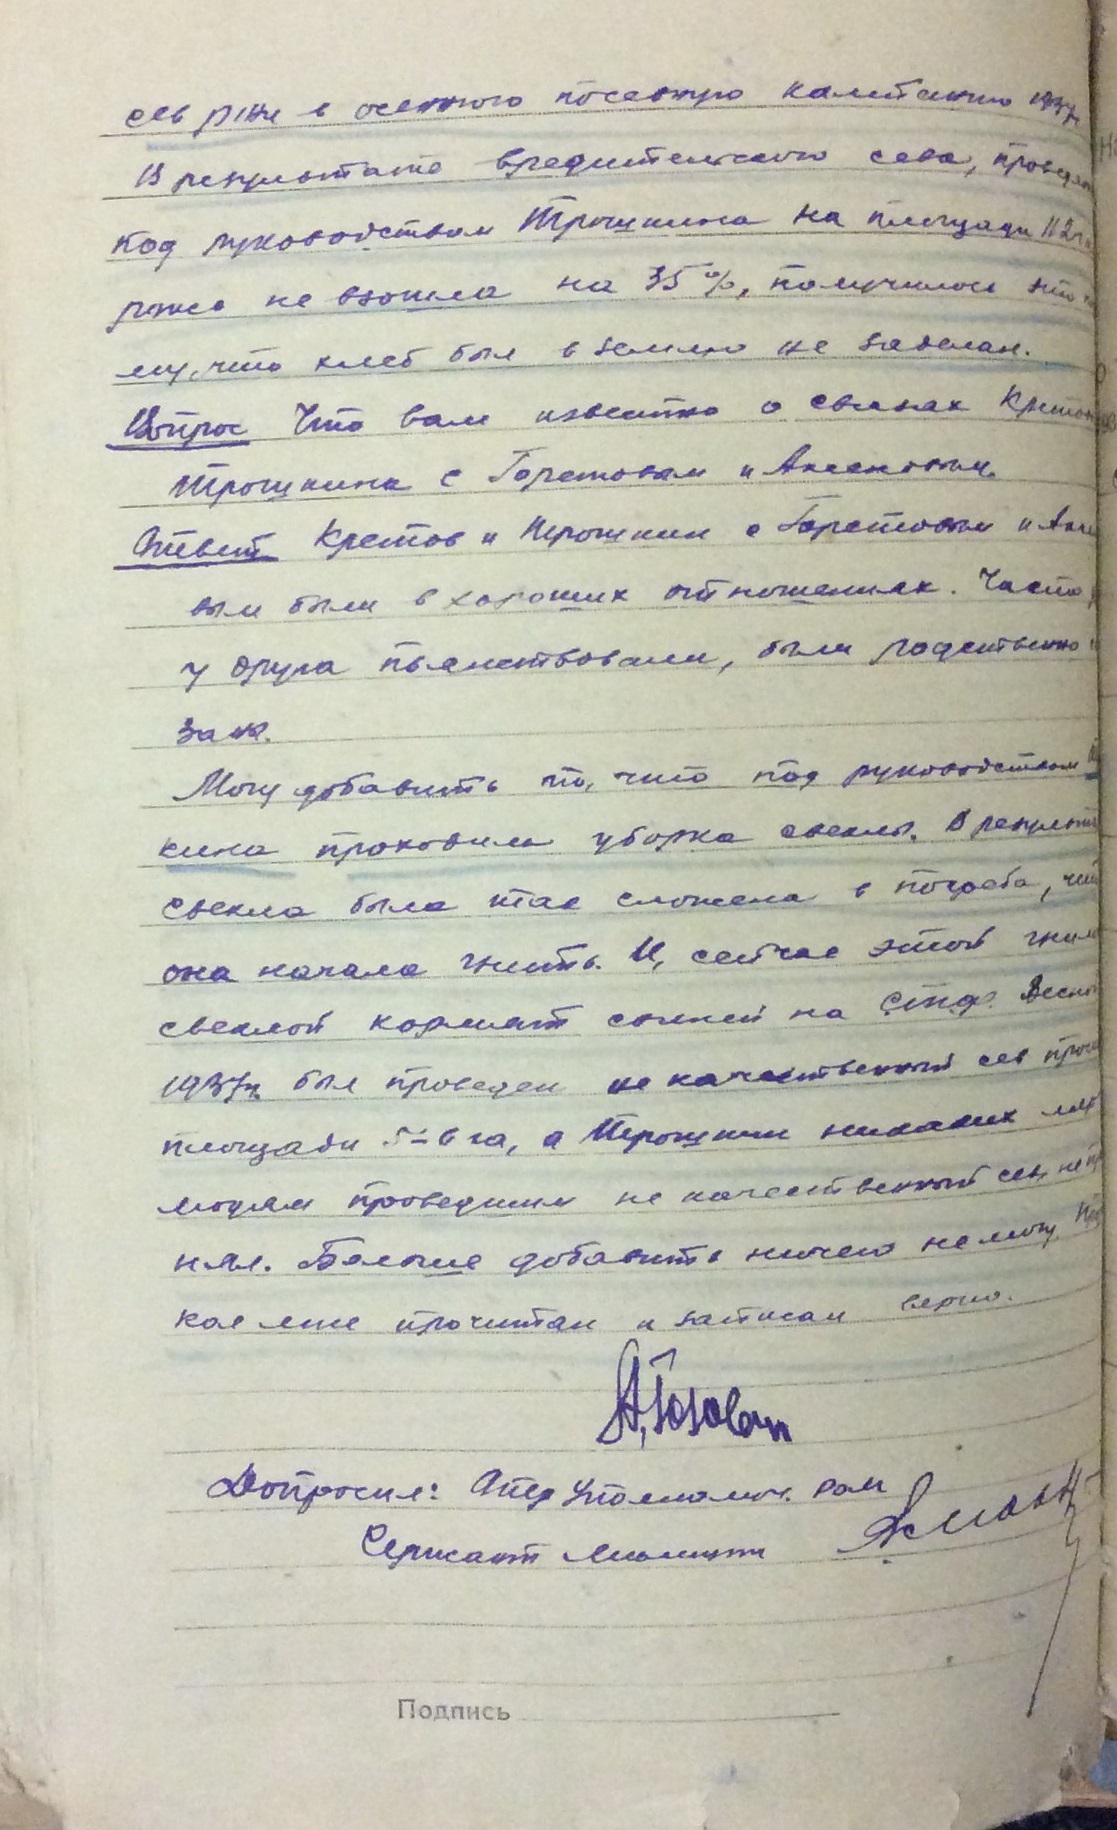 сев ржи в осеннюю посевную кампанию 1937г
В результате вредительского сева, проведен
под руководством Трошкина на площади 112 га
рожь не взошла на 35%, получилось это по
му, что хлеб был в землю не заделан.
Вопрос Что вам известно о связях Кретова
Трошкина с Горетовым и Аксеновым.
Ответ Кретов и Трошкин с Горетовым и Аксе
вым были в хороших отношениях. Часто
у друга пьянствовали, были родственно
заны.
Могу добавить то, что под руководством
кина проходила уборка свеклы. В результат
свекла была так сложена в погреба, что
она начала гнить. И, сейчас этой гнилой
свеклой кормят свиней на СТФ. Весной
1937г. был проведен не качественный сев проса
площади 5-6 га, а Трошкин никаких мер
людям проведшим не качественный сев не при
нял. Больше добавить ничего не могу.
кол мне прочитан и записан верно.
Допросил: Опер Уполномоч. РОМ
Сержант милиции
Подпись